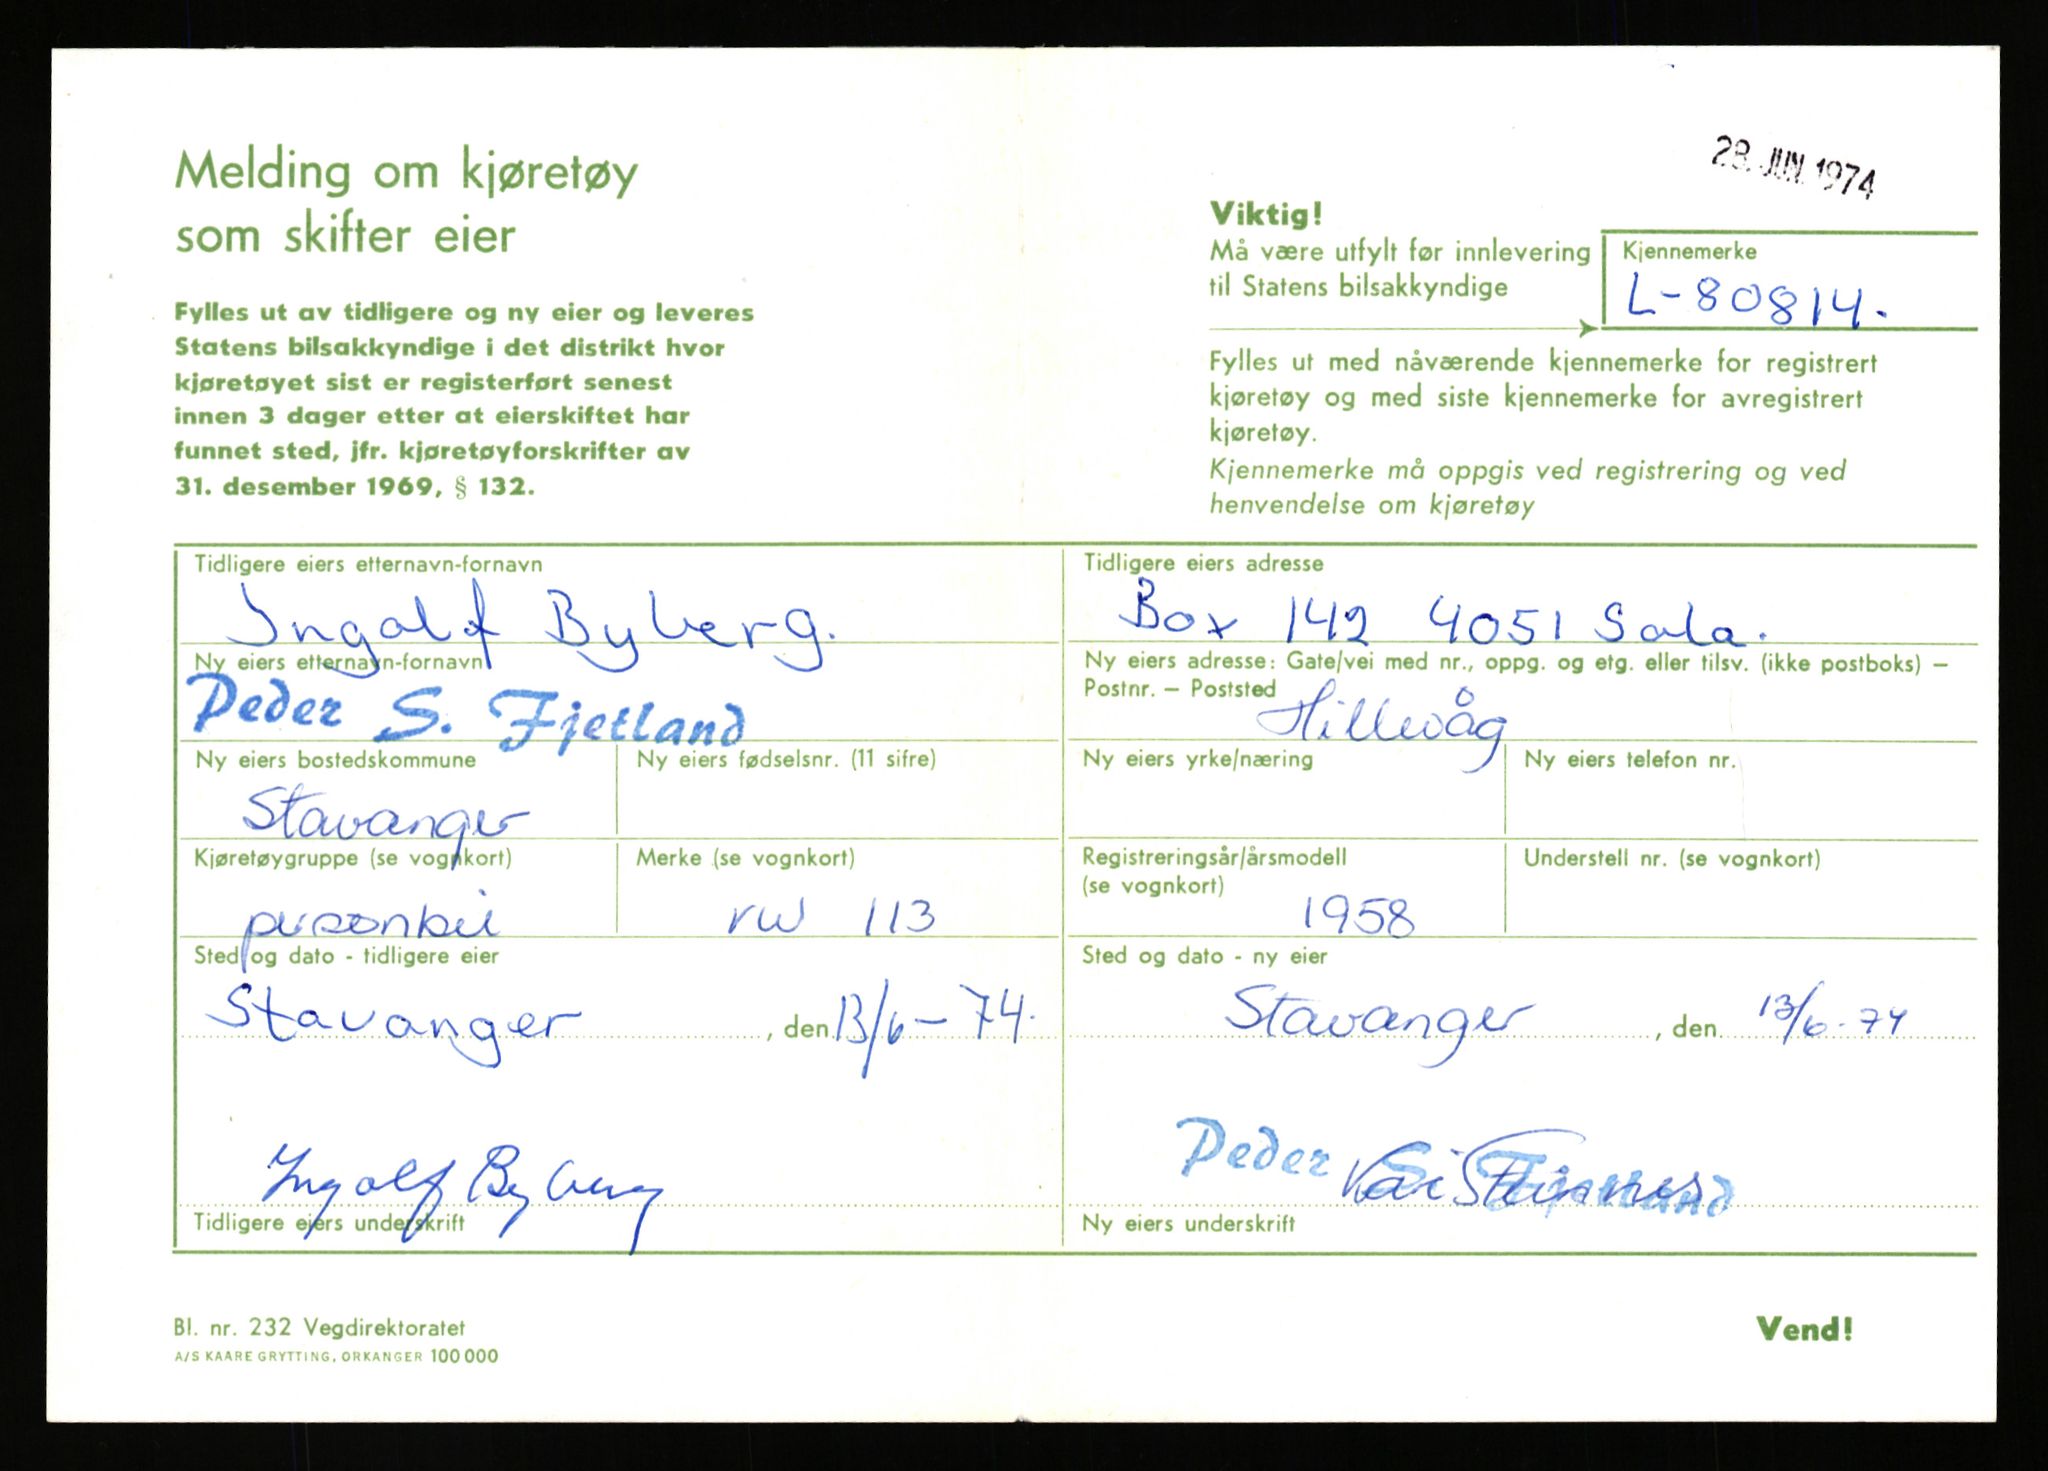 Melding om kjøretøy
som skifter eier
Fylles ut av tidligere og ny eier og leveres
Statens bilsakkyndige i det distrikt hvor
kjøretøyet sist er registerført senest
innen 3 dager etter at eierskiftet har
funnet sted, jfr. kjøretøyforskrifter av
31. desember 1969, § 132.
28. JUN. 1974
Viktig!
Må være utfylt før innlevering
til Statens bilsakkyndige
Kjennemerke
L-80814.
Fylles ut med nåværende kjennemerke for registrert
kjøretøy og med siste kjennemerke for avregistrert
kjøretøy.
Kjennemerke må oppgis ved registrering og ved
henvendelse om kjøretøy
Tidligere eiers etternavn-fornavn
Ingolf Byberg.
Tidligere eiers adresse
Box 142 4051 Sola.
Ny eiers etternavn-fornavn
Peder S. Fjetland
Ny eiers adresse: Gate/vei med nr., oppg. og etg. eller tilsv. (ikke postboks) –
Postnr. – Poststed
Hillevåg
Ny eiers bostedskommune
Stavanger
Ny eiers fødselsnr. (11 sifre)
Ny eiers yrke/næring
Ny eiers telefon nr.
Kjøretøygruppe (se vognkort)
personbil
Merke (se vognkort)
VW 113
Registreringsår/årsmodell
(se vognkort)
1958
Understell nr. (se vognkort)
Sted og dato - tidligere eier
Stavanger, den 13/6-74.
Sted og dato - ny eier
Stavanger, den 13/6-74
Ingolf Byberg
Tidligere eiers underskrift
Peder S. Fjetland
Ny eiers underskrift
Bl. nr. 232 Vegdirektoratet
A/S KAARE GRYTTING, ORKANGER 100 000
Vend!